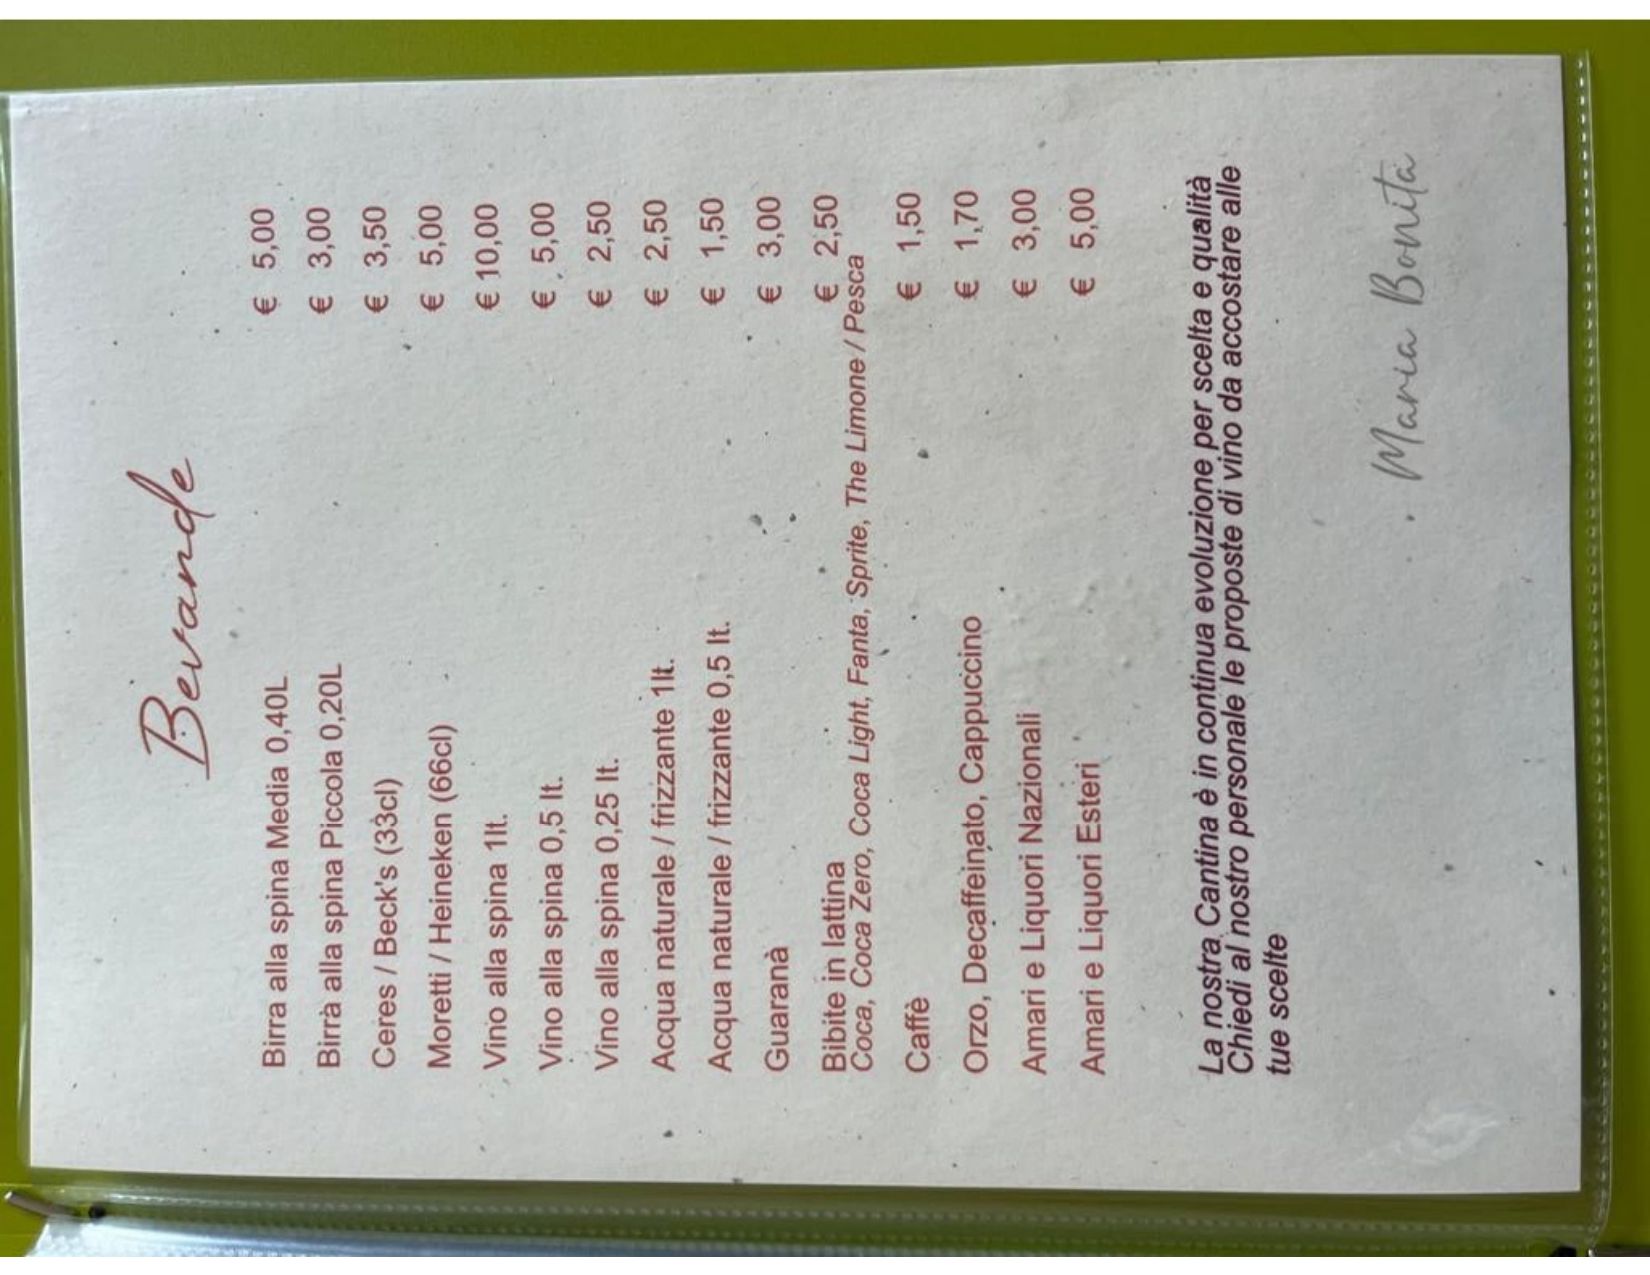 Bevande
Birra alla spina Media 0,40L € 5,00
Birra alla spina Piccola 0,20L € 3,00
Ceres / Beck's (33cl) € 3,50
Moretti / Heineken (66cl) € 5,00
Vino alla spina 1lt. € 10,00
Vino alla spina 0,5 lt. € 5,00
Vino alla spina 0,25 lt. € 2,50
Acqua naturale / frizzante 1lt. € 2,50
Acqua naturale / frizzante 0,5 lt. € 1,50
Guaranà € 3,00
Bibite in lattina € 2,50
Coca, Coca Zero, Coca Light, Fanta, Sprite, The Limone / Pesca
Caffè € 1,50
Orzo, Decaffeinato, Cappuccino € 1,70
Amari e Liquori Nazionali € 3,00
Amari e Liquori Esteri € 5,00
La nostra Cantina è in continua evoluzione per scelta e qualità
Chiedi al nostro personale le proposte di vino da accostare alle
tue scelte
Maria Bonita